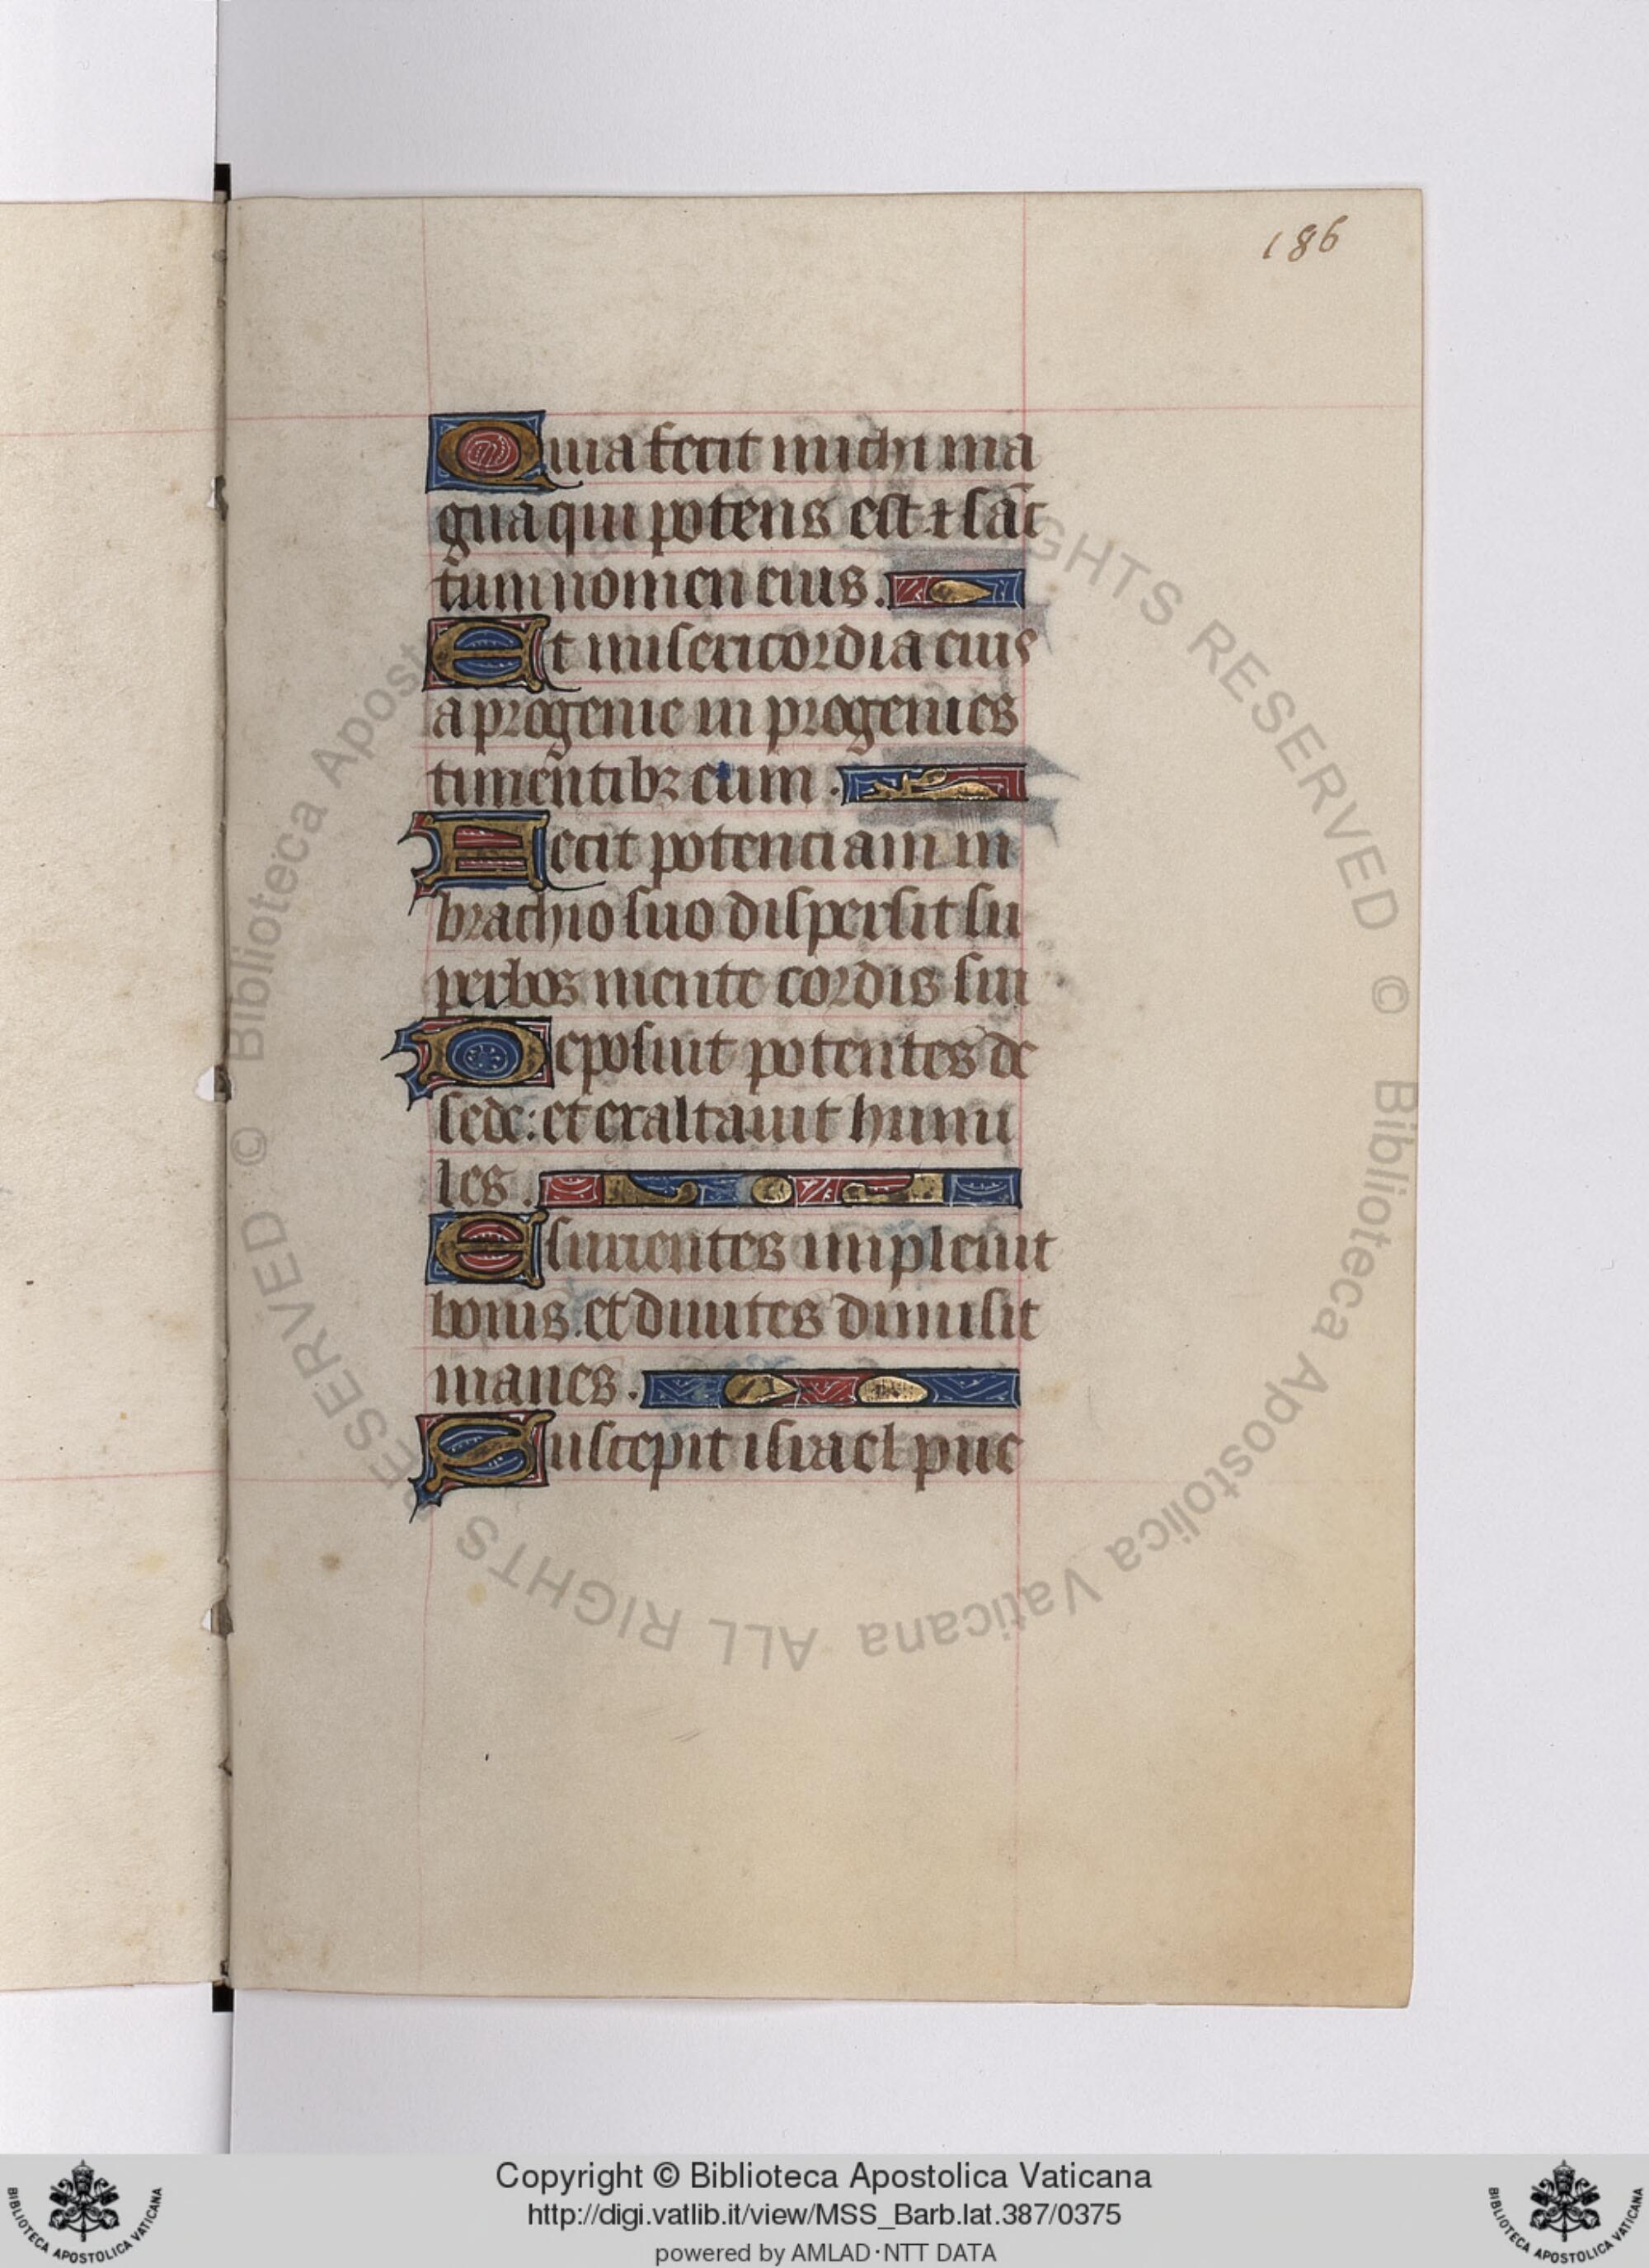 186
Quia fecit michi ma
gna qui potens est ⁊ sāc
tum nomen eius.
Et misericordia eius
a progenie in progenies
timentibꝫ eum.
Fecit potenciam in
brachio suo dispersit su
perbos mente cordis sui
Deposuit potentes de
sede: et exaltauit humi
les.
Esurientes impleuit
bonis. et diuites dimisit
inanes.
Suscepit israel pue
© Biblioteca Apostolica Vaticana ALL RIGHTS RESERVED © Biblioteca Apostolica Vaticana ALL RIGHTS RESERVED
Copyright © Biblioteca Apostolica Vaticana
http://digi.vatlib.it/view/MSS_Barb.lat.387/0375
powered by AMLAD·NTT DATA
BIBLIOTECA APOSTOLICA VATICANA
BIBLIOTECA APOSTOLICA VATICANA